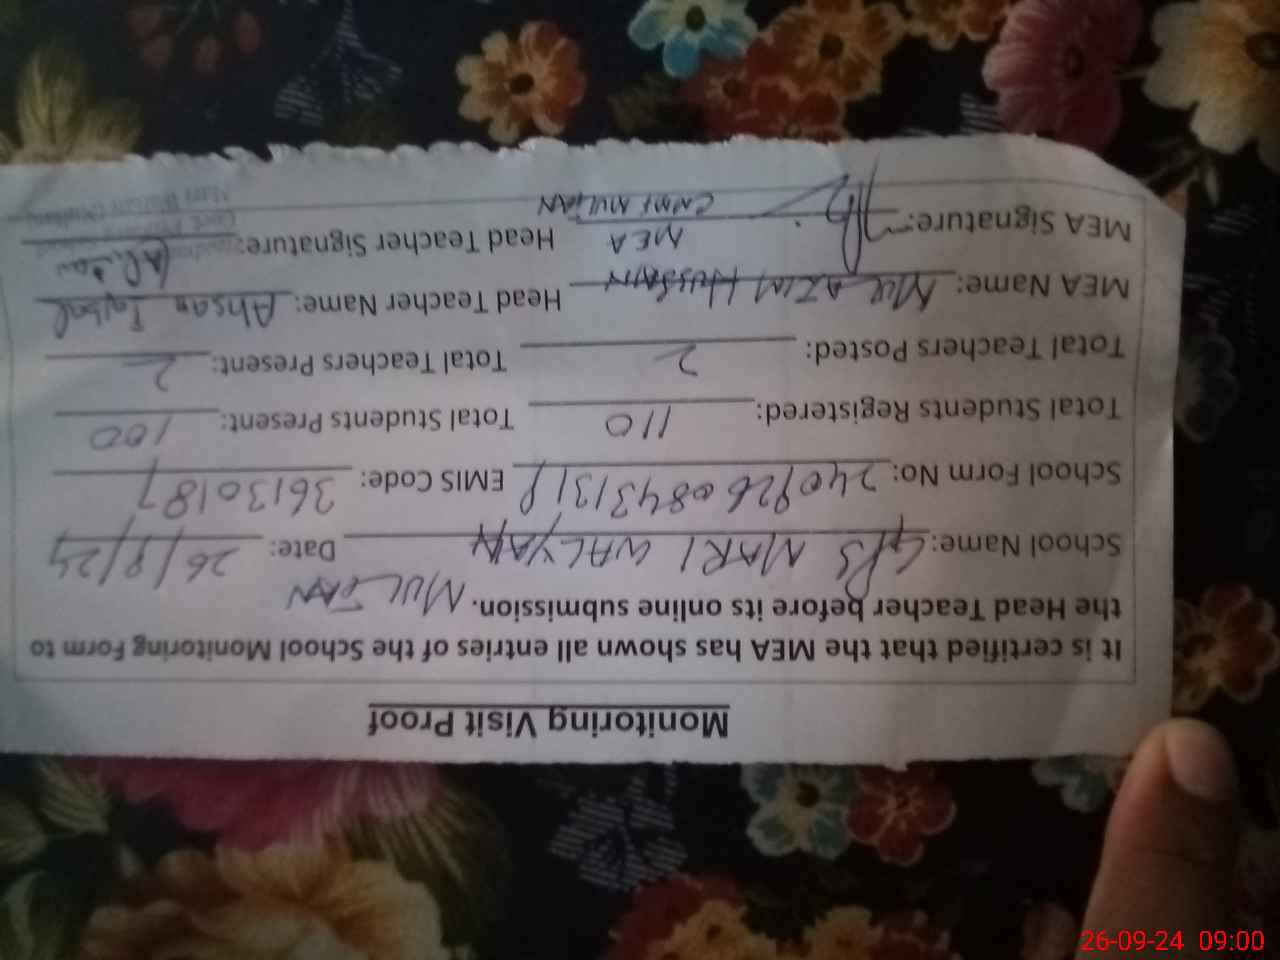 Monitoring Visit Proof
It is certified that the MEA has shown all entries of the School Monitoring Form to
the Head Teacher before its online submission. MULTAN
School Name: GPS MARI WALYAN Date: 26/9/24
School Form No: EMIS Code: 36130187
Total Students Registered: 110 Total Students Present: 100
Total Teachers Posted: 2 Total Teachers Present: 2
MEA Name: HUSSAIN Head Teacher Name: Ahsan Faisal
MEA
MEA Signature: CMMF MULTAN Head Teacher Signature:
26-09-24 09:00